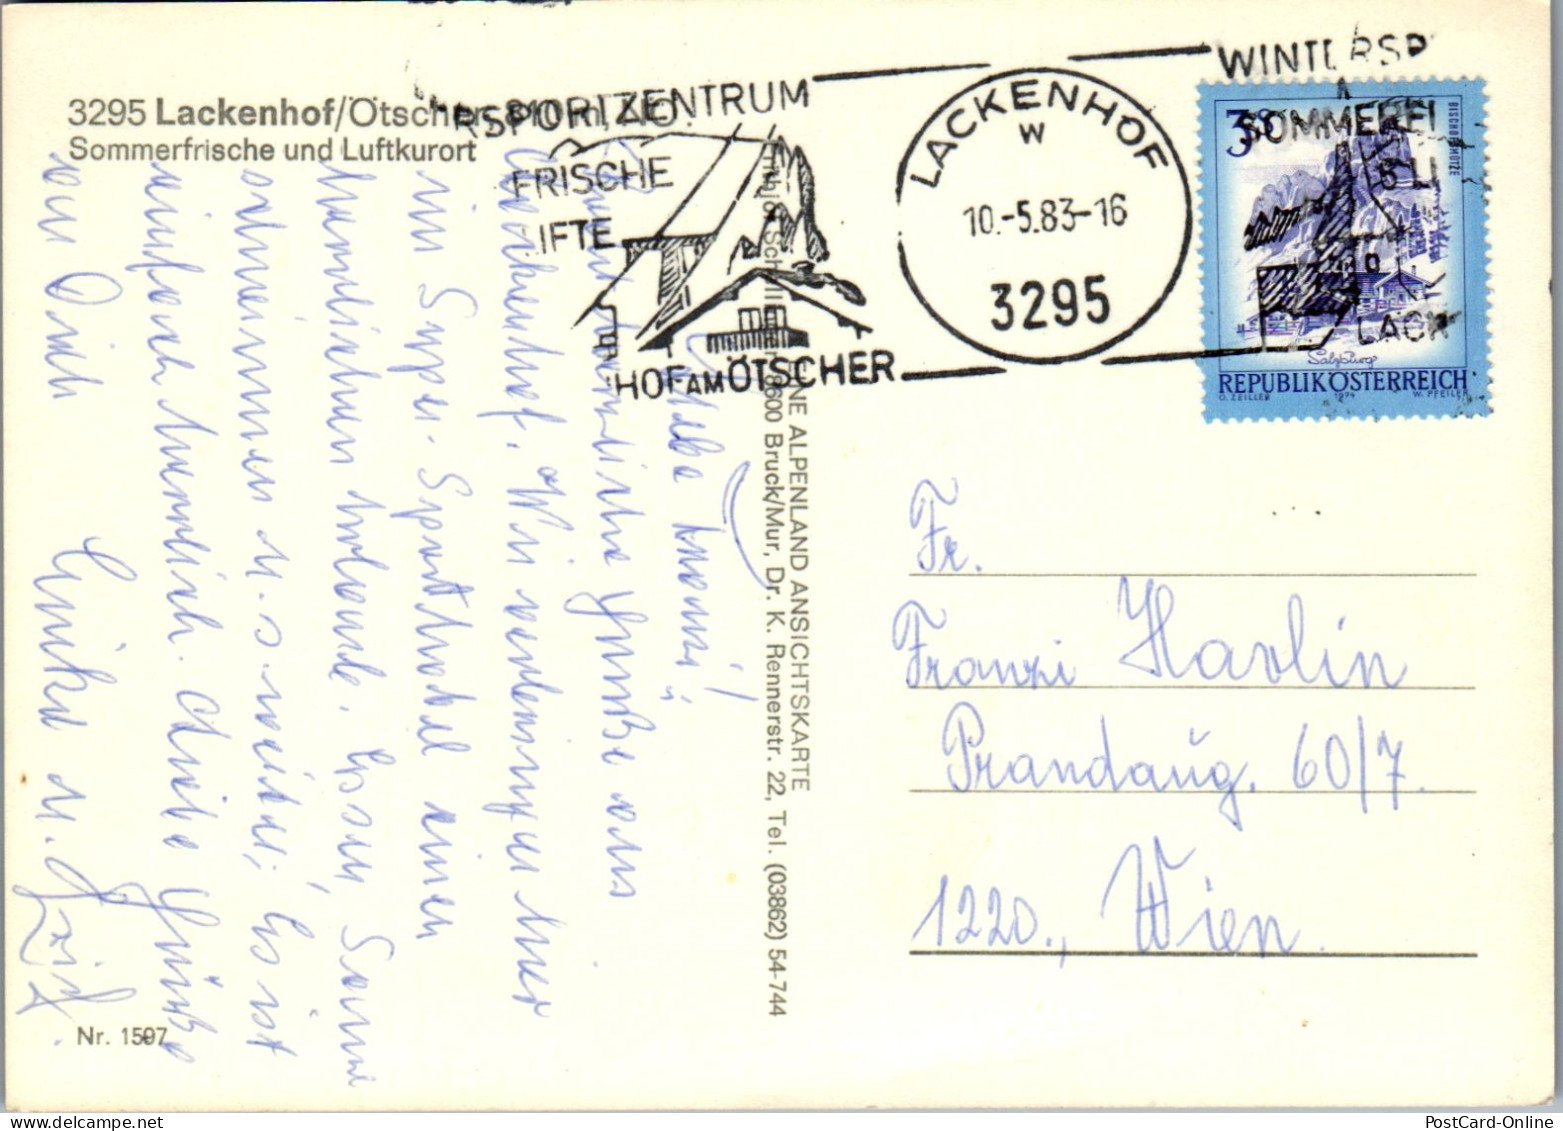 3295 Lackenhof/Ötscher, 810 m, NÖ.
Sommerfrische und Luftkurort
RSPORTZENTRUM
FRISCHE
IFTE
HOF AM ÖTSCHER
LACKENHOF
W
10.-5.83-16
3295
WINTERSP
SOMMER
LACK
BISCHOFSMÜTZE
Salzburg
REPUBLIK ÖSTERREICH
O. ZEILLER 1974 W. PFEILER
Liebe Franzi!
Ganz herzliche Grüße aus
Lackenhof. Wir verbringen hier
im Super-Sporthotel einen
herrlichen Urlaub. Essen, Sonne
schwimmen u.s.weiter; Es ist
einfach herrlich. Liebe Grüße
an Dich
u.
ALPENLAND ANSICHTSKARTE
8600 Bruck/Mur, Dr. K. Rennerstr. 22, Tel. (03862) 54-744
Nr. 1597
Fr.
Franzi Havlin
Prandaug. 60/7.
1220., Wien.
PostCard-Online